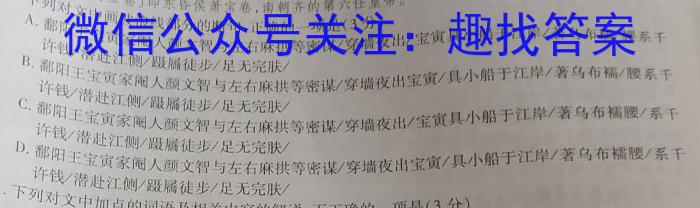 即东昏侯萧宝卷,南朝齐的第六任皇帝。
下列对文中画
微信公众号关注:趣找答案
A. 鄱
夜出/宝寅
许钱/潜赴江侧/蹑屩徒步/足无完肤/
B. 鄱阳王宝寅家阉人颜文智与左右麻拱等密谋/穿墙夜出宝寅/具小船于江岸/著乌布襦/腰系千
许钱/潜赴江侧/蹑屩徒步/足无完肤/
C. 鄱阳王宝寅家阉人颜文智与左右麻拱等密谋/穿墙夜出/宝寅具小船于江岸/著乌布襦腰/系千
许钱/潜赴江侧/蹑屩徒步/足无完肤/
D. 鄱阳王宝寅家阉人颜文智与左右麻拱等密谋/穿墙夜出宝寅/具小船于江岸/著乌布襦腰/系千
许钱/潜赴江侧/蹑屩徒步/足无完肤/
.下列对文中加点的词语及相关内容的解说,不正确的一项是(3分)